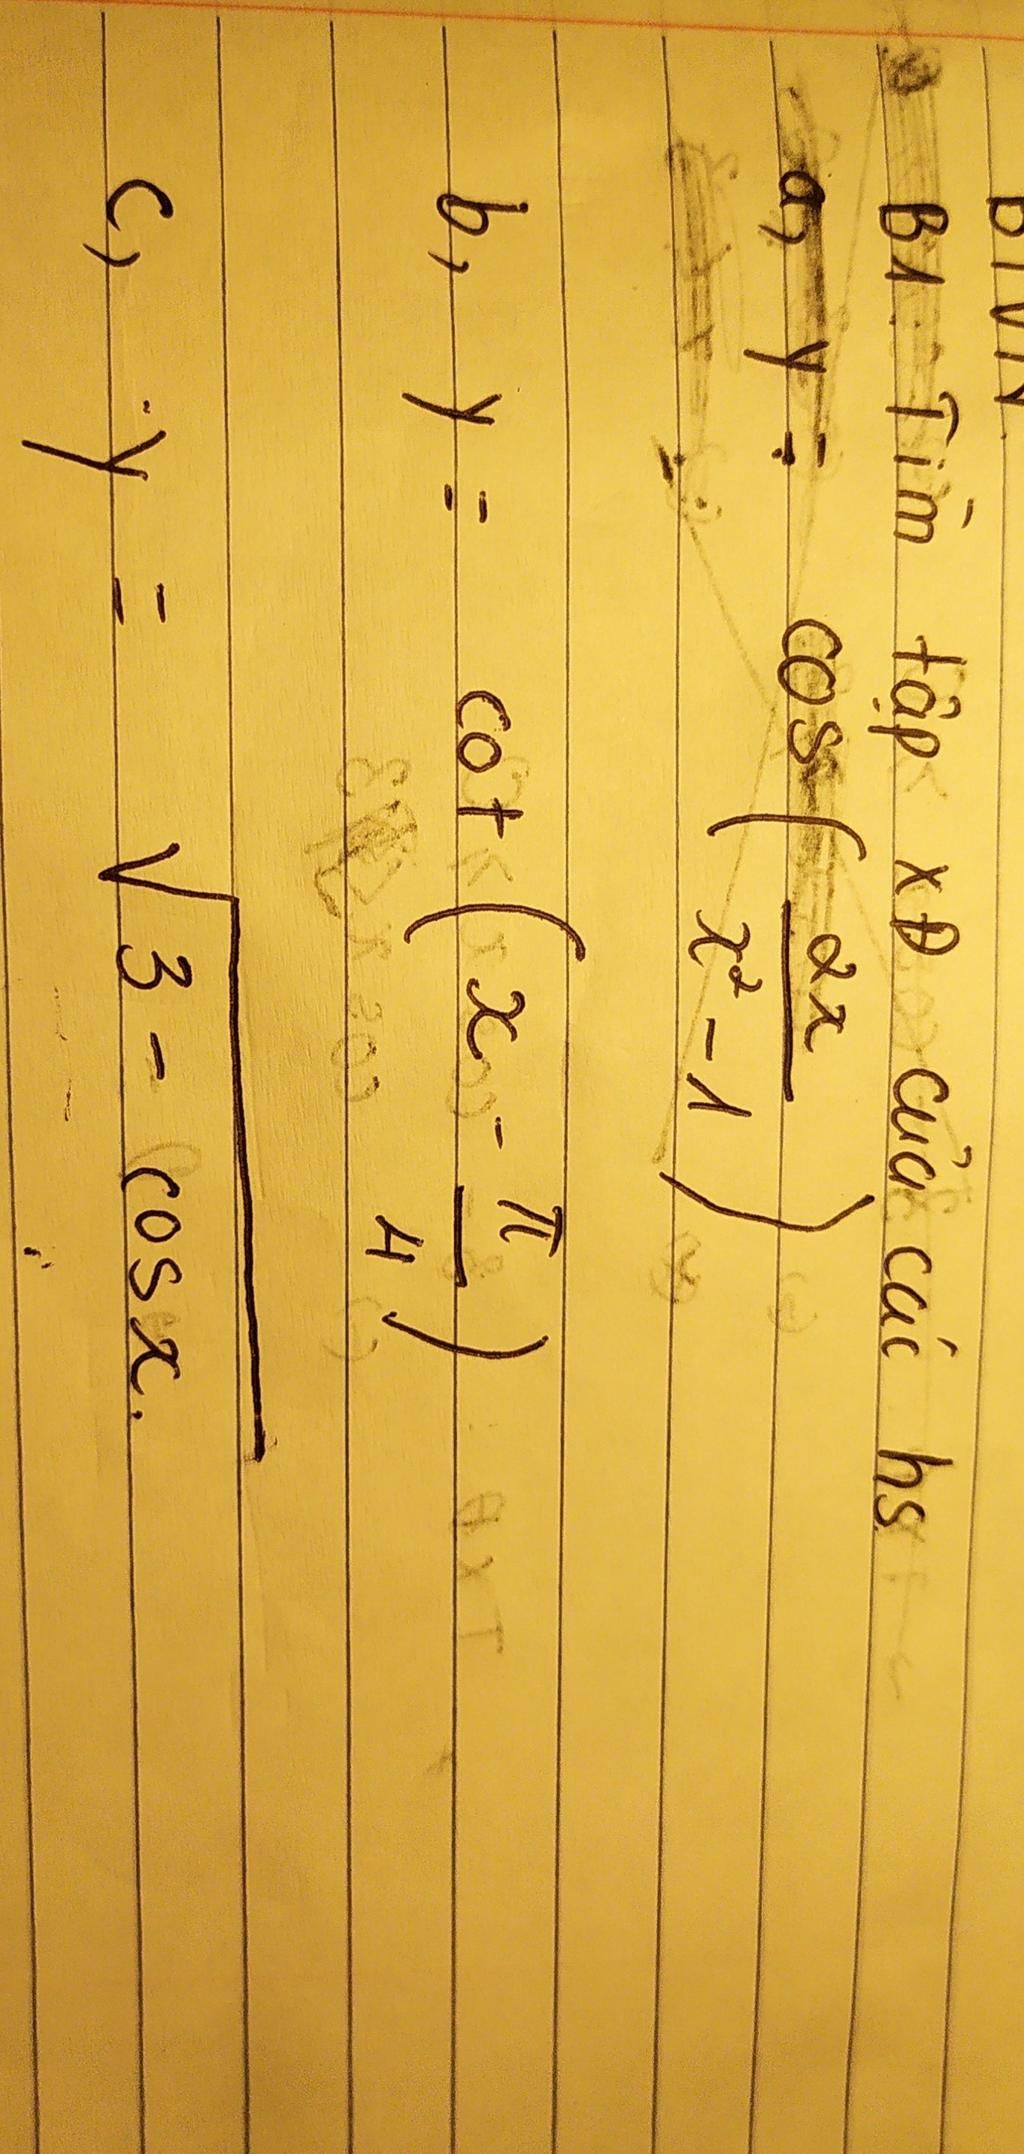 BTVN
B1: Tìm tập xĐ của các hs
a, y = cos( 2x / x² - 1 )
b, y = cot ( x - π / 4 )
c, y = √3 - cosx.